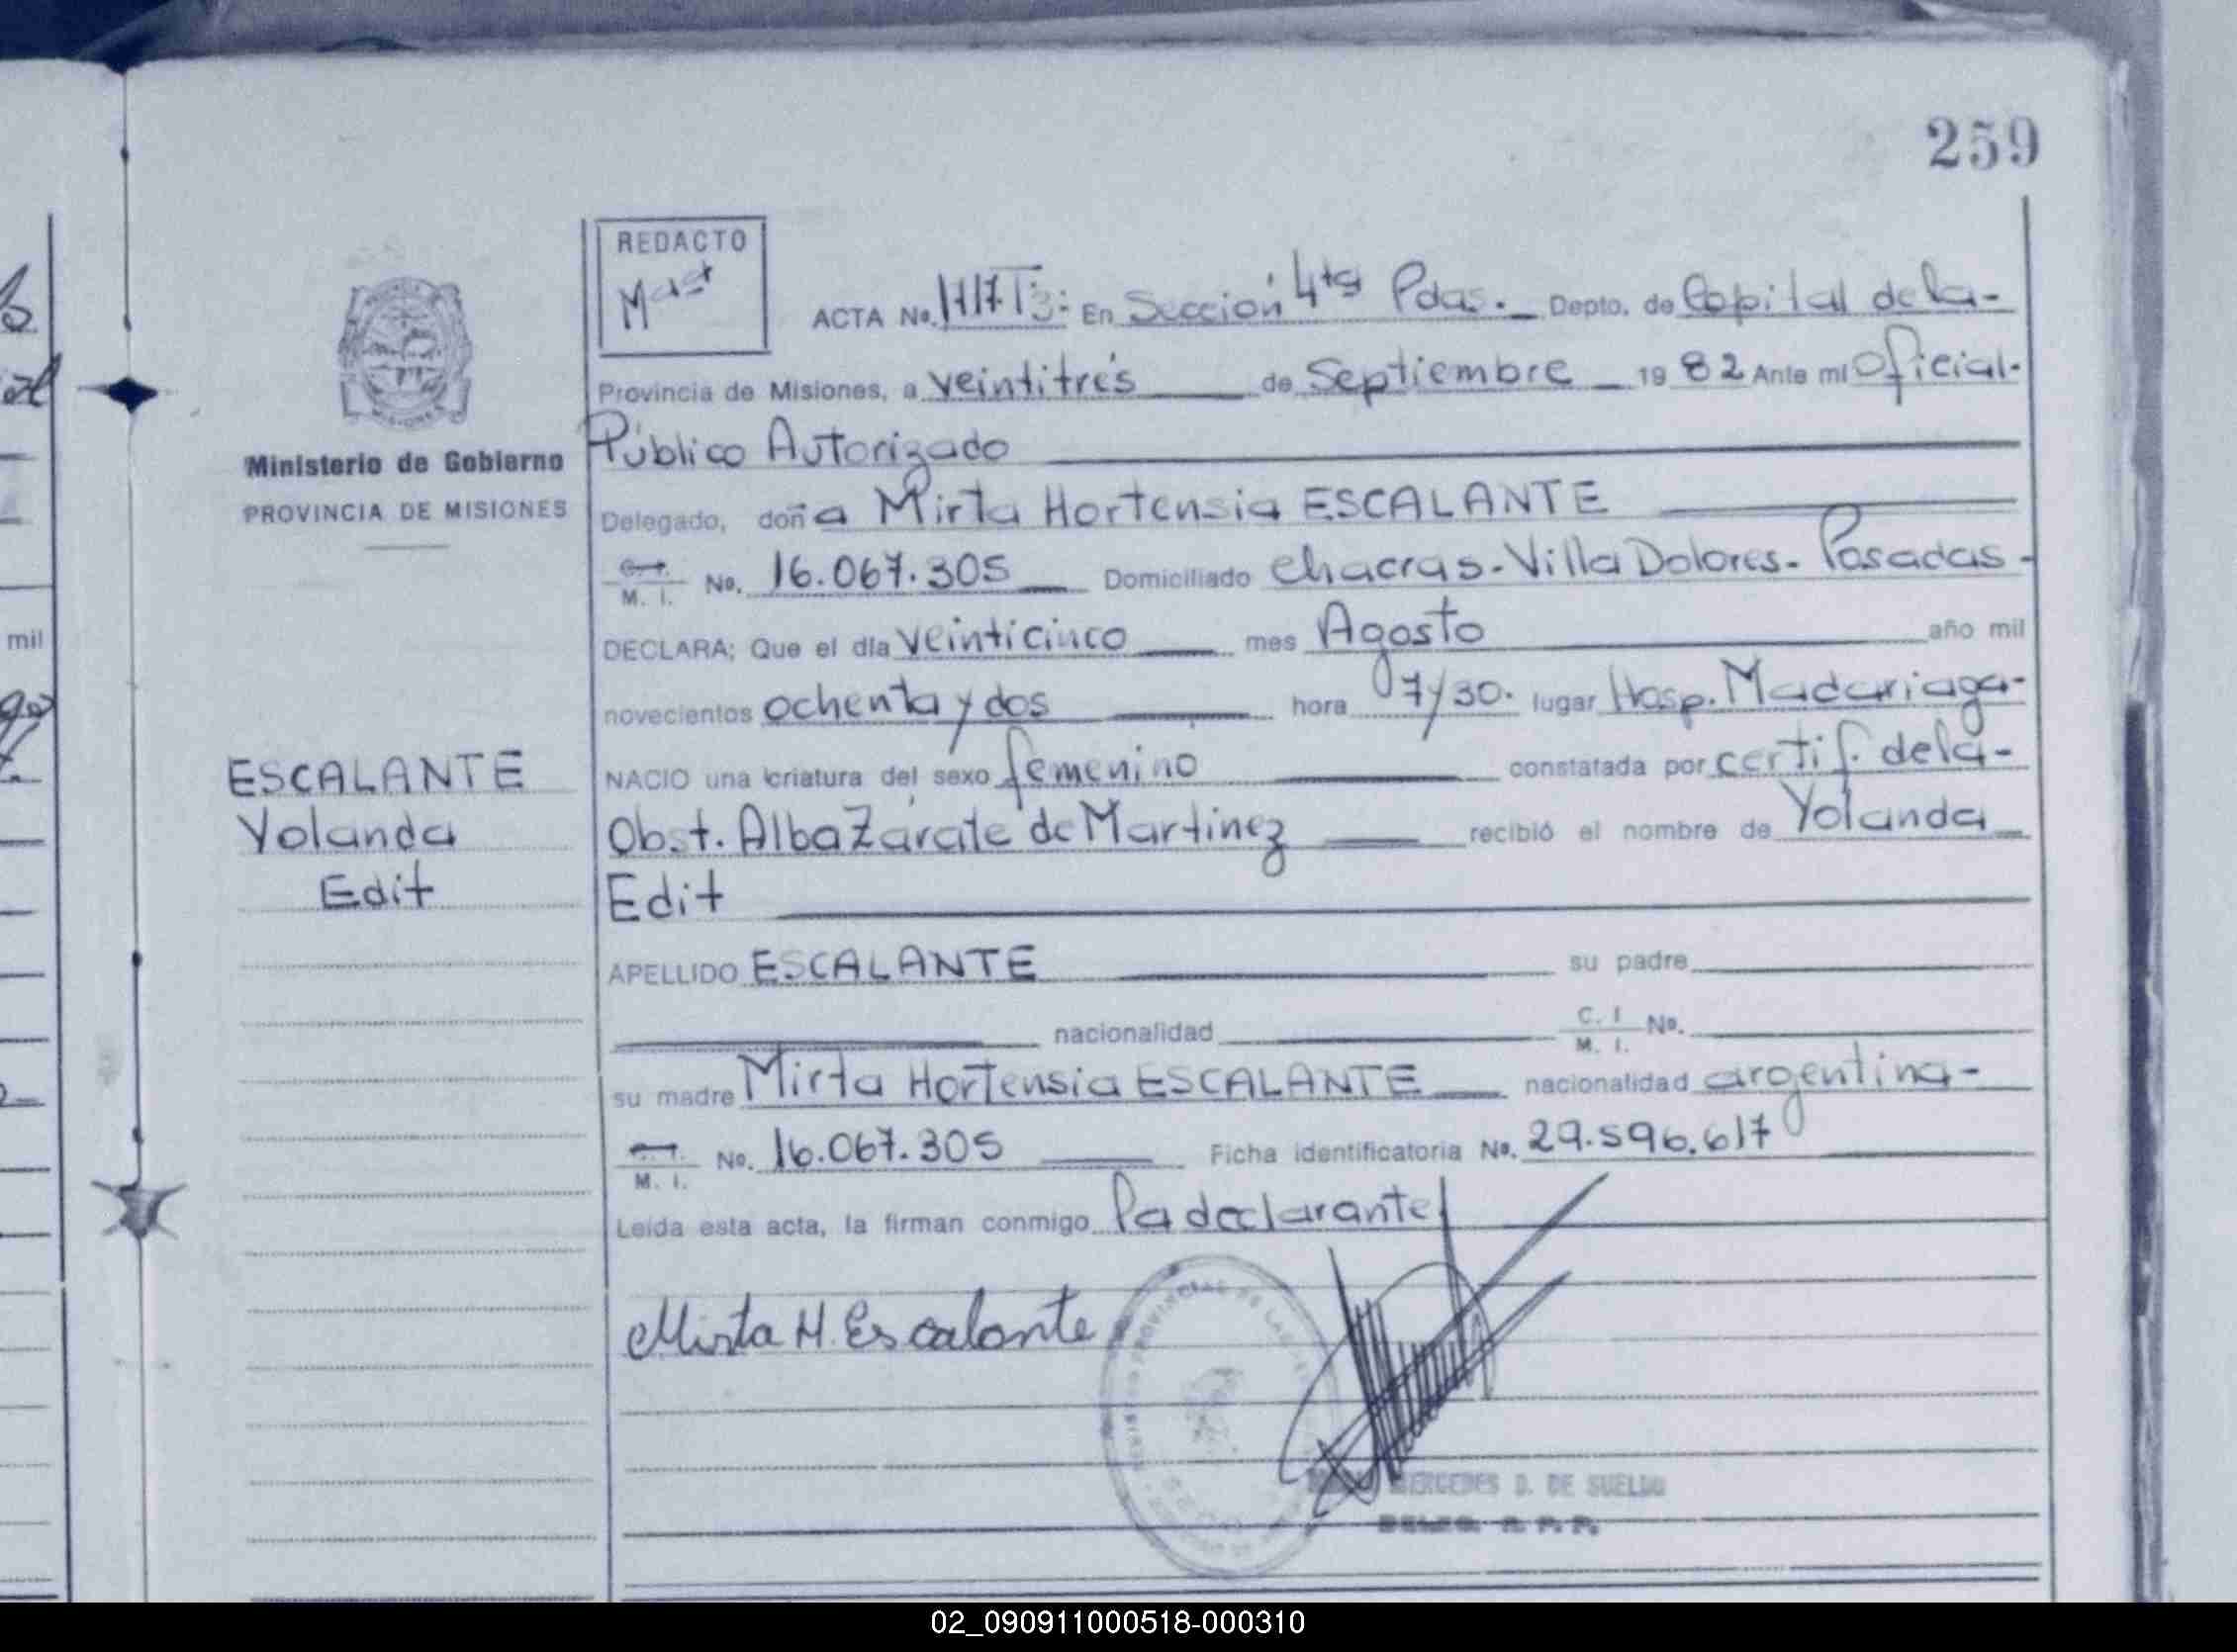 259
REDACTO
Mast
ACTA No. En Sección 4ta Pdas. Depto. de Capital de la-
Provincia de Misiones, a veintitrés de Septiembre 19 82 Ante mí Oficial.
Público Autorizado
Ministerio de Gobierno
PROVINCIA DE MISIONES
Delegado, doña Mirta Hortensia ESCALANTE
M. I. No. 16.067.305 Domiciliado Chacras-Villa Dolores- Posadas-
DECLARA; Que el día veinticinco mes Agosto año mil
novecientos ochenta y dos hora 07/30. lugar Hosp. Madariaga-
NACIO una criatura del sexo femenino constatada por certif. de la-
Obst. Alba Zárate de Martinez recibió el nombre de Yolanda
Edit
ESCALANTE
Yolanda
Edit
APELLIDO ESCALANTE su padre
nacionalidad C. I M. I. No.
su madre Mirta Hortensia ESCALANTE nacionalidad argentina-
M. I. No. 16.067.305 Ficha identificatoria No. 29.596.617
Leída esta acta, la firman conmigo la declarante
Mirta H. Escalante
MERCEDES D. DE SUELDO
mil
02_090911000518-000310